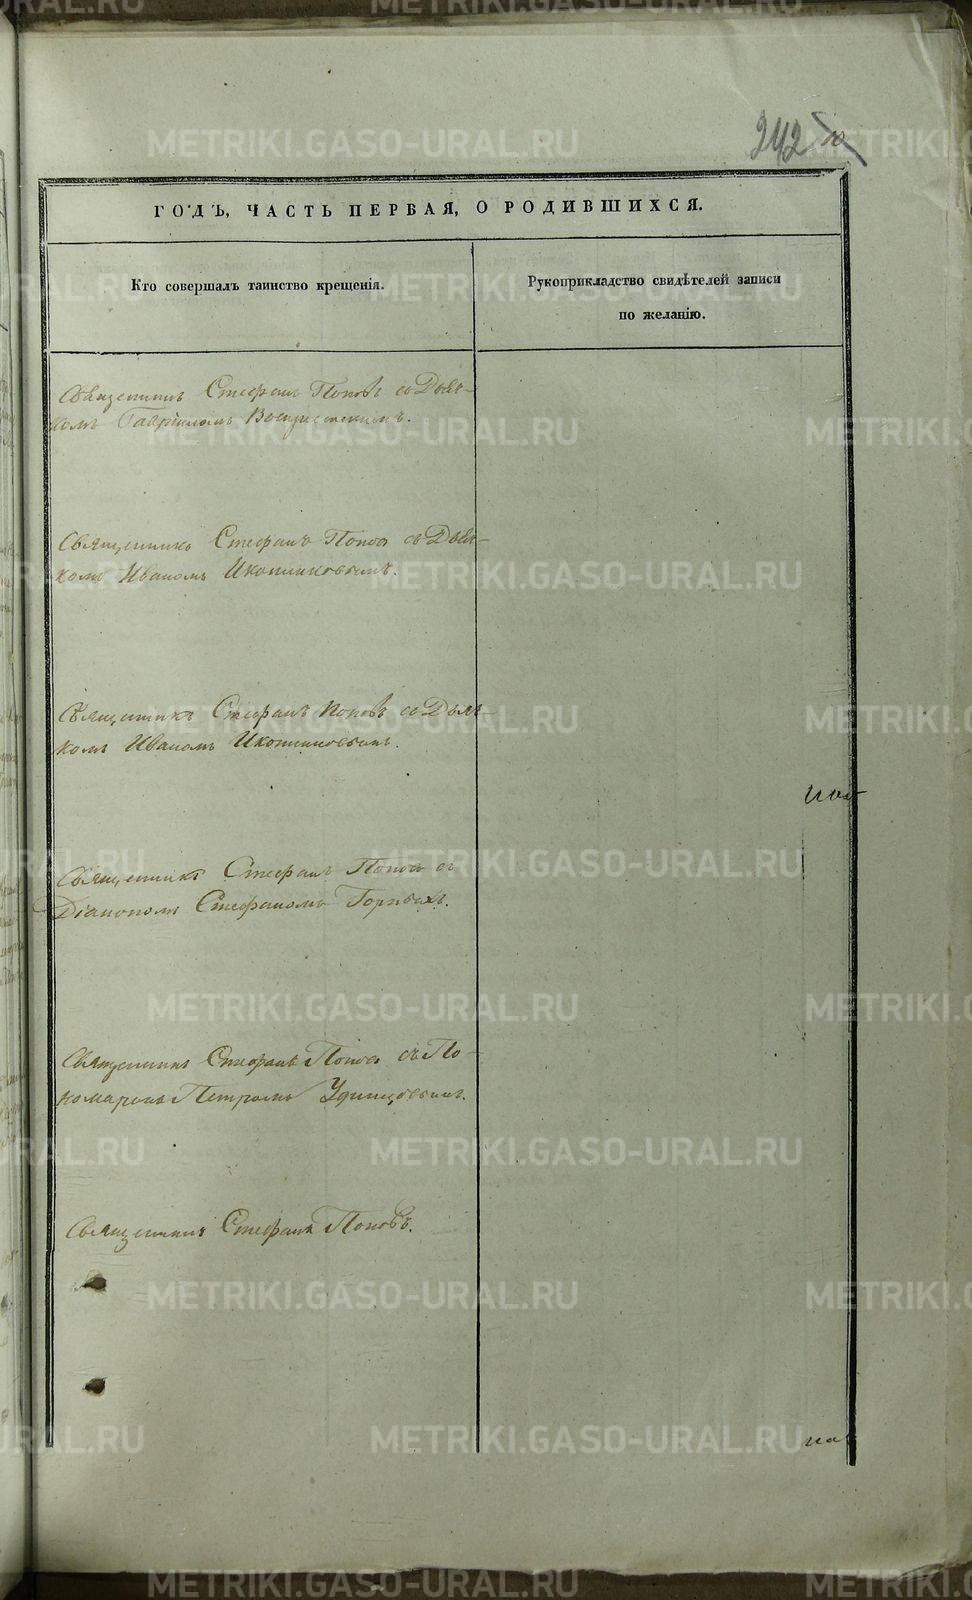 242
10
ГОДЪ, ЧАСТЬ ПЕРВАЯ, О РОДИВШИХСЯ.
Кто совершалъ таинство крещенія.
Рукоприкладство свидѣтелей записи
по желанію.
Священникъ Стефанъ Поповъ съ Дьяч-
комъ Гавріиломъ
Священникъ Стефанъ Поповъ съ Дьяч-
комъ Иваномъ Иконниковымъ.
Священникъ Стефанъ Поповъ съ Дьяч-
комъ Иваномъ Иконниковымъ.
Священникъ Стефанъ Поповъ съ
Діакономъ Стефаномъ
Священникъ Стефанъ Поповъ съ По-
номаремъ Петромъ Удинцовымъ.
Священникъ Стефанъ Поповъ.
METRIKI.GASO-URAL.RU